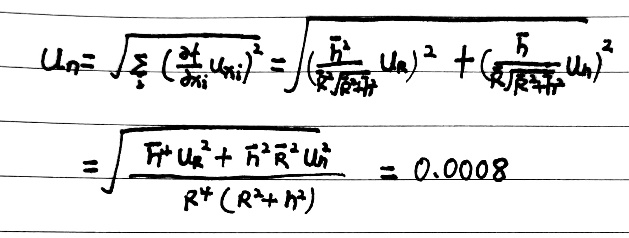 Uₙ = √(Σᵢ (∂f/∂xᵢ Uₓᵢ)²) = √((h̄²/(R̄²√(R̄²+h̄²)) U_R)² + (h̄/(R̄√(R̄²+h̄²)) U_h)²)
= √((h̄⁴U_R² + h̄²R̄²U_h²)/(R⁴(R²+h²))) = 0.0008